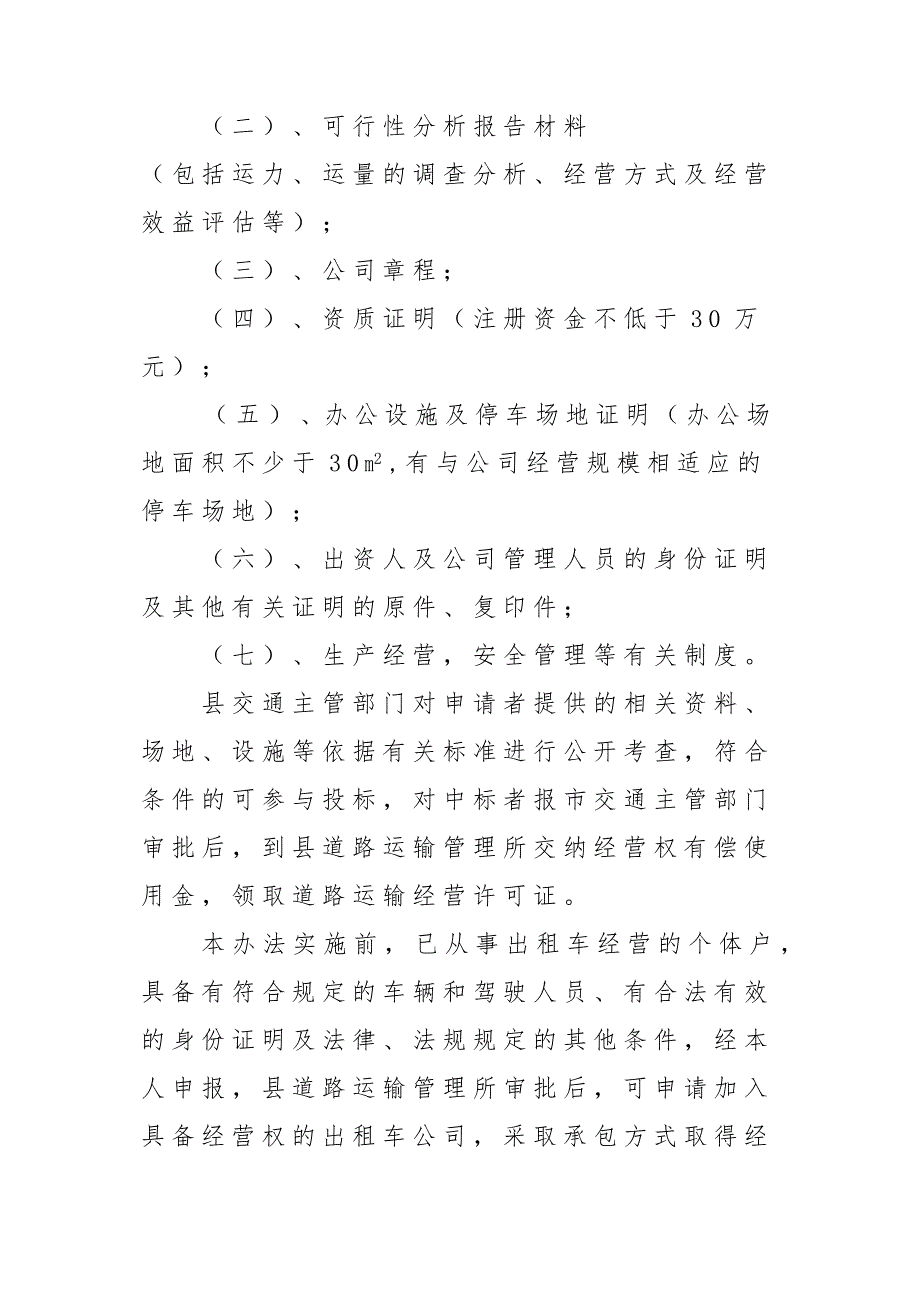 （二）、可行性分析报告材料
（包括运力、运量的调查分析、经营方式及经营
效益评估等）；
（三）、公司章程；
（四）、资质证明（注册资金不低于30万
元）；
（五）、办公设施及停车场地证明（办公场
地面积不少于30m²,有与公司经营规模相适应的
停车场地）；
（六）、出资人及公司管理人员的身份证明
及其他有关证明的原件、复印件；
（七）、生产经营，安全管理等有关制度。
县交通主管部门对申请者提供的相关资料、
场地、设施等依据有关标准进行公开考查，符合
条件的可参与投标，对中标者报市交通主管部门
审批后，到县道路运输管理所交纳经营权有偿使
用金，领取道路运输经营许可证。
本办法实施前，已从事出租车经营的个体户，
具备有符合规定的车辆和驾驶人员、有合法有效
的身份证明及法律、法规规定的其他条件，经本
人申报，县道路运输管理所审批后，可申请加入
具备经营权的出租车公司，采取承包方式取得经